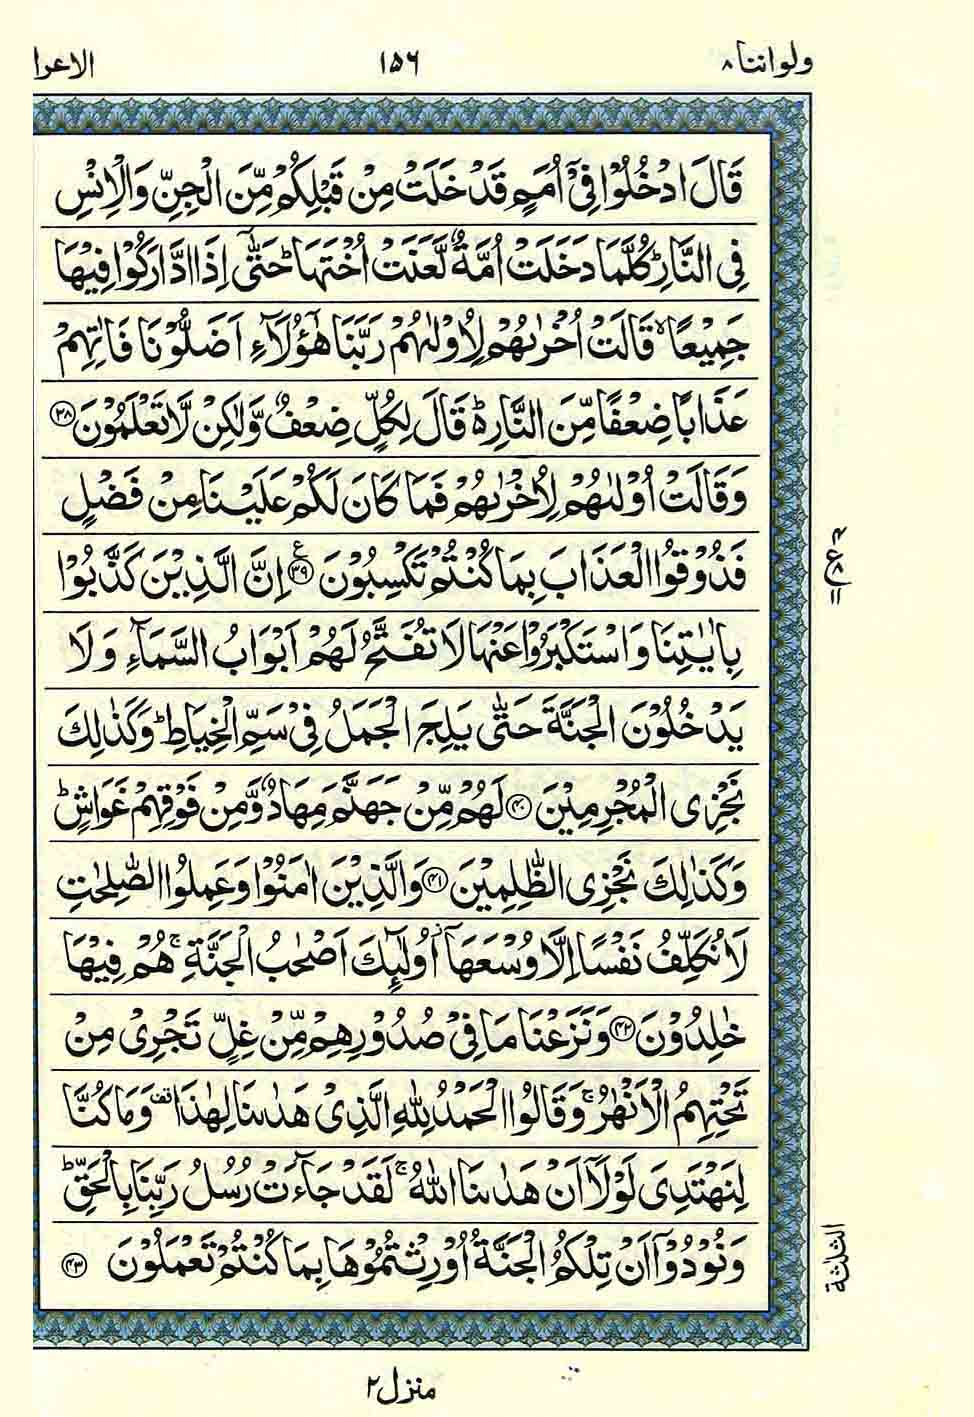 ولواننا ٨ ١٥٦ الاعرا
قَالَ ادْخُلُوْا فِیْۤ اُمَمٍ قَدْ خَلَتْ مِنْ قَبْلِكُمْ مِّنَ الْجِنِّ وَالْاِنْسِ
فِی النَّارِ ؕ كُلَّمَا دَخَلَتْ اُمَّةٌ لَّعَنَتْ اُخْتَهَا ؕ حَتّٰۤی اِذَا ادَّارَكُوْا فِیْهَا
جَمِیْعًا ۙ قَالَتْ اُخْرٰىهُمْ لِاُوْلٰىهُمْ رَبَّنَا هٰۤؤُلَآءِ اَضَلُّوْنَا فَاٰتِهِمْ
عَذَابًا ضِعْفًا مِّنَ النَّارِ ؕ۬ قَالَ لِكُلٍّ ضِعْفٌ وَّلٰكِنْ لَّا تَعْلَمُوْنَ ﴿٣٨﴾
وَقَالَتْ اُوْلٰىهُمْ لِاُخْرٰىهُمْ فَمَا كَانَ لَكُمْ عَلَیْنَا مِنْ فَضْلٍ
فَذُوْقُوا الْعَذَابَ بِمَا كُنْتُمْ تَكْسِبُوْنَ ﴿٣٩﴾ ع اِنَّ الَّذِیْنَ كَذَّبُوْا
بِاٰیٰتِنَا وَاسْتَكْبَرُوْا عَنْهَا لَا تُفَتَّحُ لَهُمْ اَبْوَابُ السَّمَآءِ وَلَا
یَدْخُلُوْنَ الْجَنَّةَ حَتّٰی یَلِجَ الْجَمَلُ فِیْ سَمِّ الْخِیَاطِ ؕ وَكَذٰلِكَ
نَجْزِی الْمُجْرِمِیْنَ ﴿٤٠﴾ لَهُمْ مِّنْ جَهَنَّمَ مِهَادٌ وَّمِنْ فَوْقِهِمْ غَوَاشٍ ؕ
وَكَذٰلِكَ نَجْزِی الظّٰلِمِیْنَ ﴿٤١﴾ وَالَّذِیْنَ اٰمَنُوْا وَعَمِلُوا الصّٰلِحٰتِ
لَا نُكَلِّفُ نَفْسًا اِلَّا وُسْعَهَاۤ ؗ اُولٰٓىِٕكَ اَصْحٰبُ الْجَنَّةِ ۚ هُمْ فِیْهَا
خٰلِدُوْنَ ﴿٤٢﴾ وَنَزَعْنَا مَا فِیْ صُدُوْرِهِمْ مِّنْ غِلٍّ تَجْرِیْ مِنْ
تَحْتِهِمُ الْاَنْهٰرُ ۚ وَقَالُوا الْحَمْدُ لِلّٰهِ الَّذِیْ هَدٰىنَا لِهٰذَا قف وَمَا كُنَّا
لِنَهْتَدِیَ لَوْلَاۤ اَنْ هَدٰىنَا اللّٰهُ ۚ لَقَدْ جَآءَتْ رُسُلُ رَبِّنَا بِالْحَقِّ ؕ
وَنُوْدُوْۤا اَنْ تِلْكُمُ الْجَنَّةُ اُوْرِثْتُمُوْهَا بِمَا كُنْتُمْ تَعْمَلُوْنَ ﴿٤٣﴾
٤
ع ٨
١١
الثلٰثة
منزل ٢